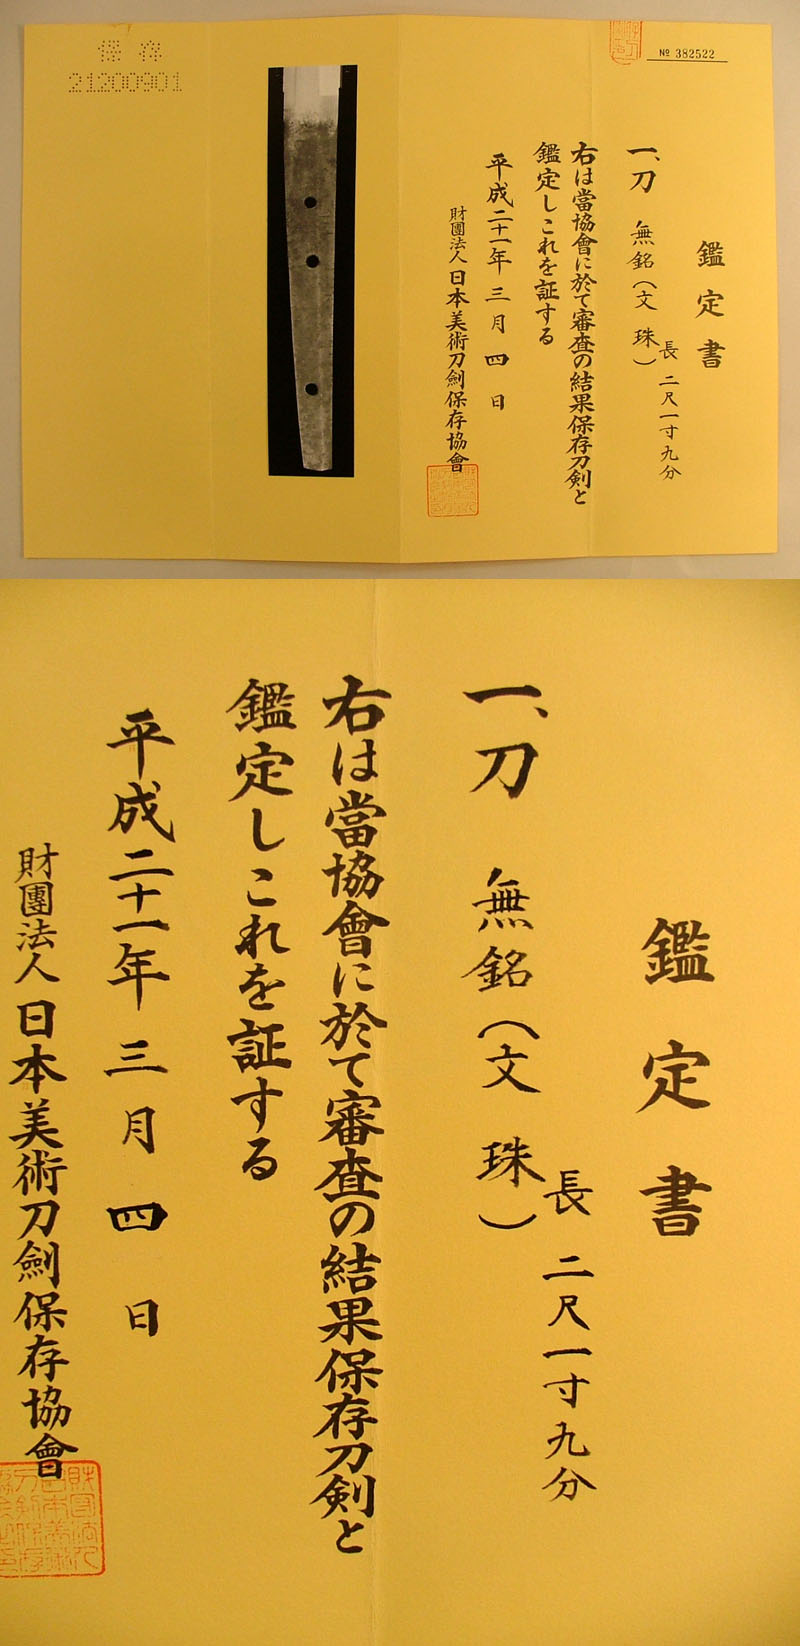 保存
21200901
№ 382522
鑑定書
一、刀 無銘(文珠)
長 二尺一寸九分
右は當協會に於て審査の結果保存刀剣と
鑑定しこれを証する
平成二十一年 三月 四日
財團法人 日本美術刀劍保存協會
鑑定書
一、刀 無銘(文珠)
長 二尺一寸九分
右は當協會に於て審査の結果保存刀剣と
鑑定しこれを証する
平成二十一年 三月 四日
財團法人 日本美術刀劍保存協會